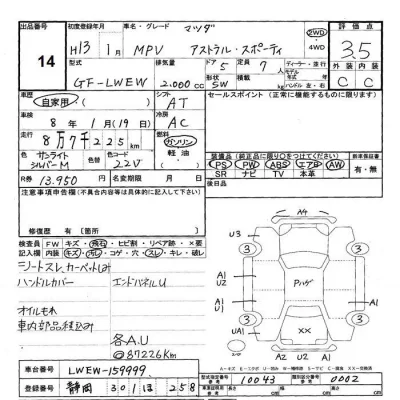 出品番号
14
初度登録年月
H13年 1月
車名・グレード
マツダ
MPV アストラル・スポーティ
2WD
4WD
評価点
3.5
外装 内装
C C
型式
GF-LWEW
排気量
2,000cc
ドア 5
形状 SW
定員 7
ディーラー・並行
モデル年式
ハンドル 左・右
車歴
自家用
シフト
AT
セールスポイント (正常に機能するものに限る)
車検
8年 1月(19日)
冷房
AC
走行
8万7千225km
燃料
ガソリン
軽油
色
サンライトシルバーM
色替
色コード
22V
装備品 (純正品に限り○をつけてください)
PS PW ABS エアB AW
SR ナビ TV 本革
新車保証書
有・無
R券
13,950
名変期限 月 日
後日品
注意事項申告欄 (不具合内容等は具体的に記入して下さい)
修復歴 有 [箇所
検査員記入欄
FW キズ・飛石・ヒビ割・リペア跡・×要
内装 キズ・汚レ・コゲ・穴・スレ・キレ・破レ
シートスレ カーペットしみ
ハンドルカバー エンドパネルU
オイルもれ
車内部品積込み
各A.U
@87226Km
A4
U3
3
3
A1
A1
U2
Pハゲ
A1
U1
UA1
3
3
XX
A2 U2 A1
車台番号
LWEW-159999
登録番号
静岡 301 ほ 258
型式指定番号
10043
類別区分番号
0002